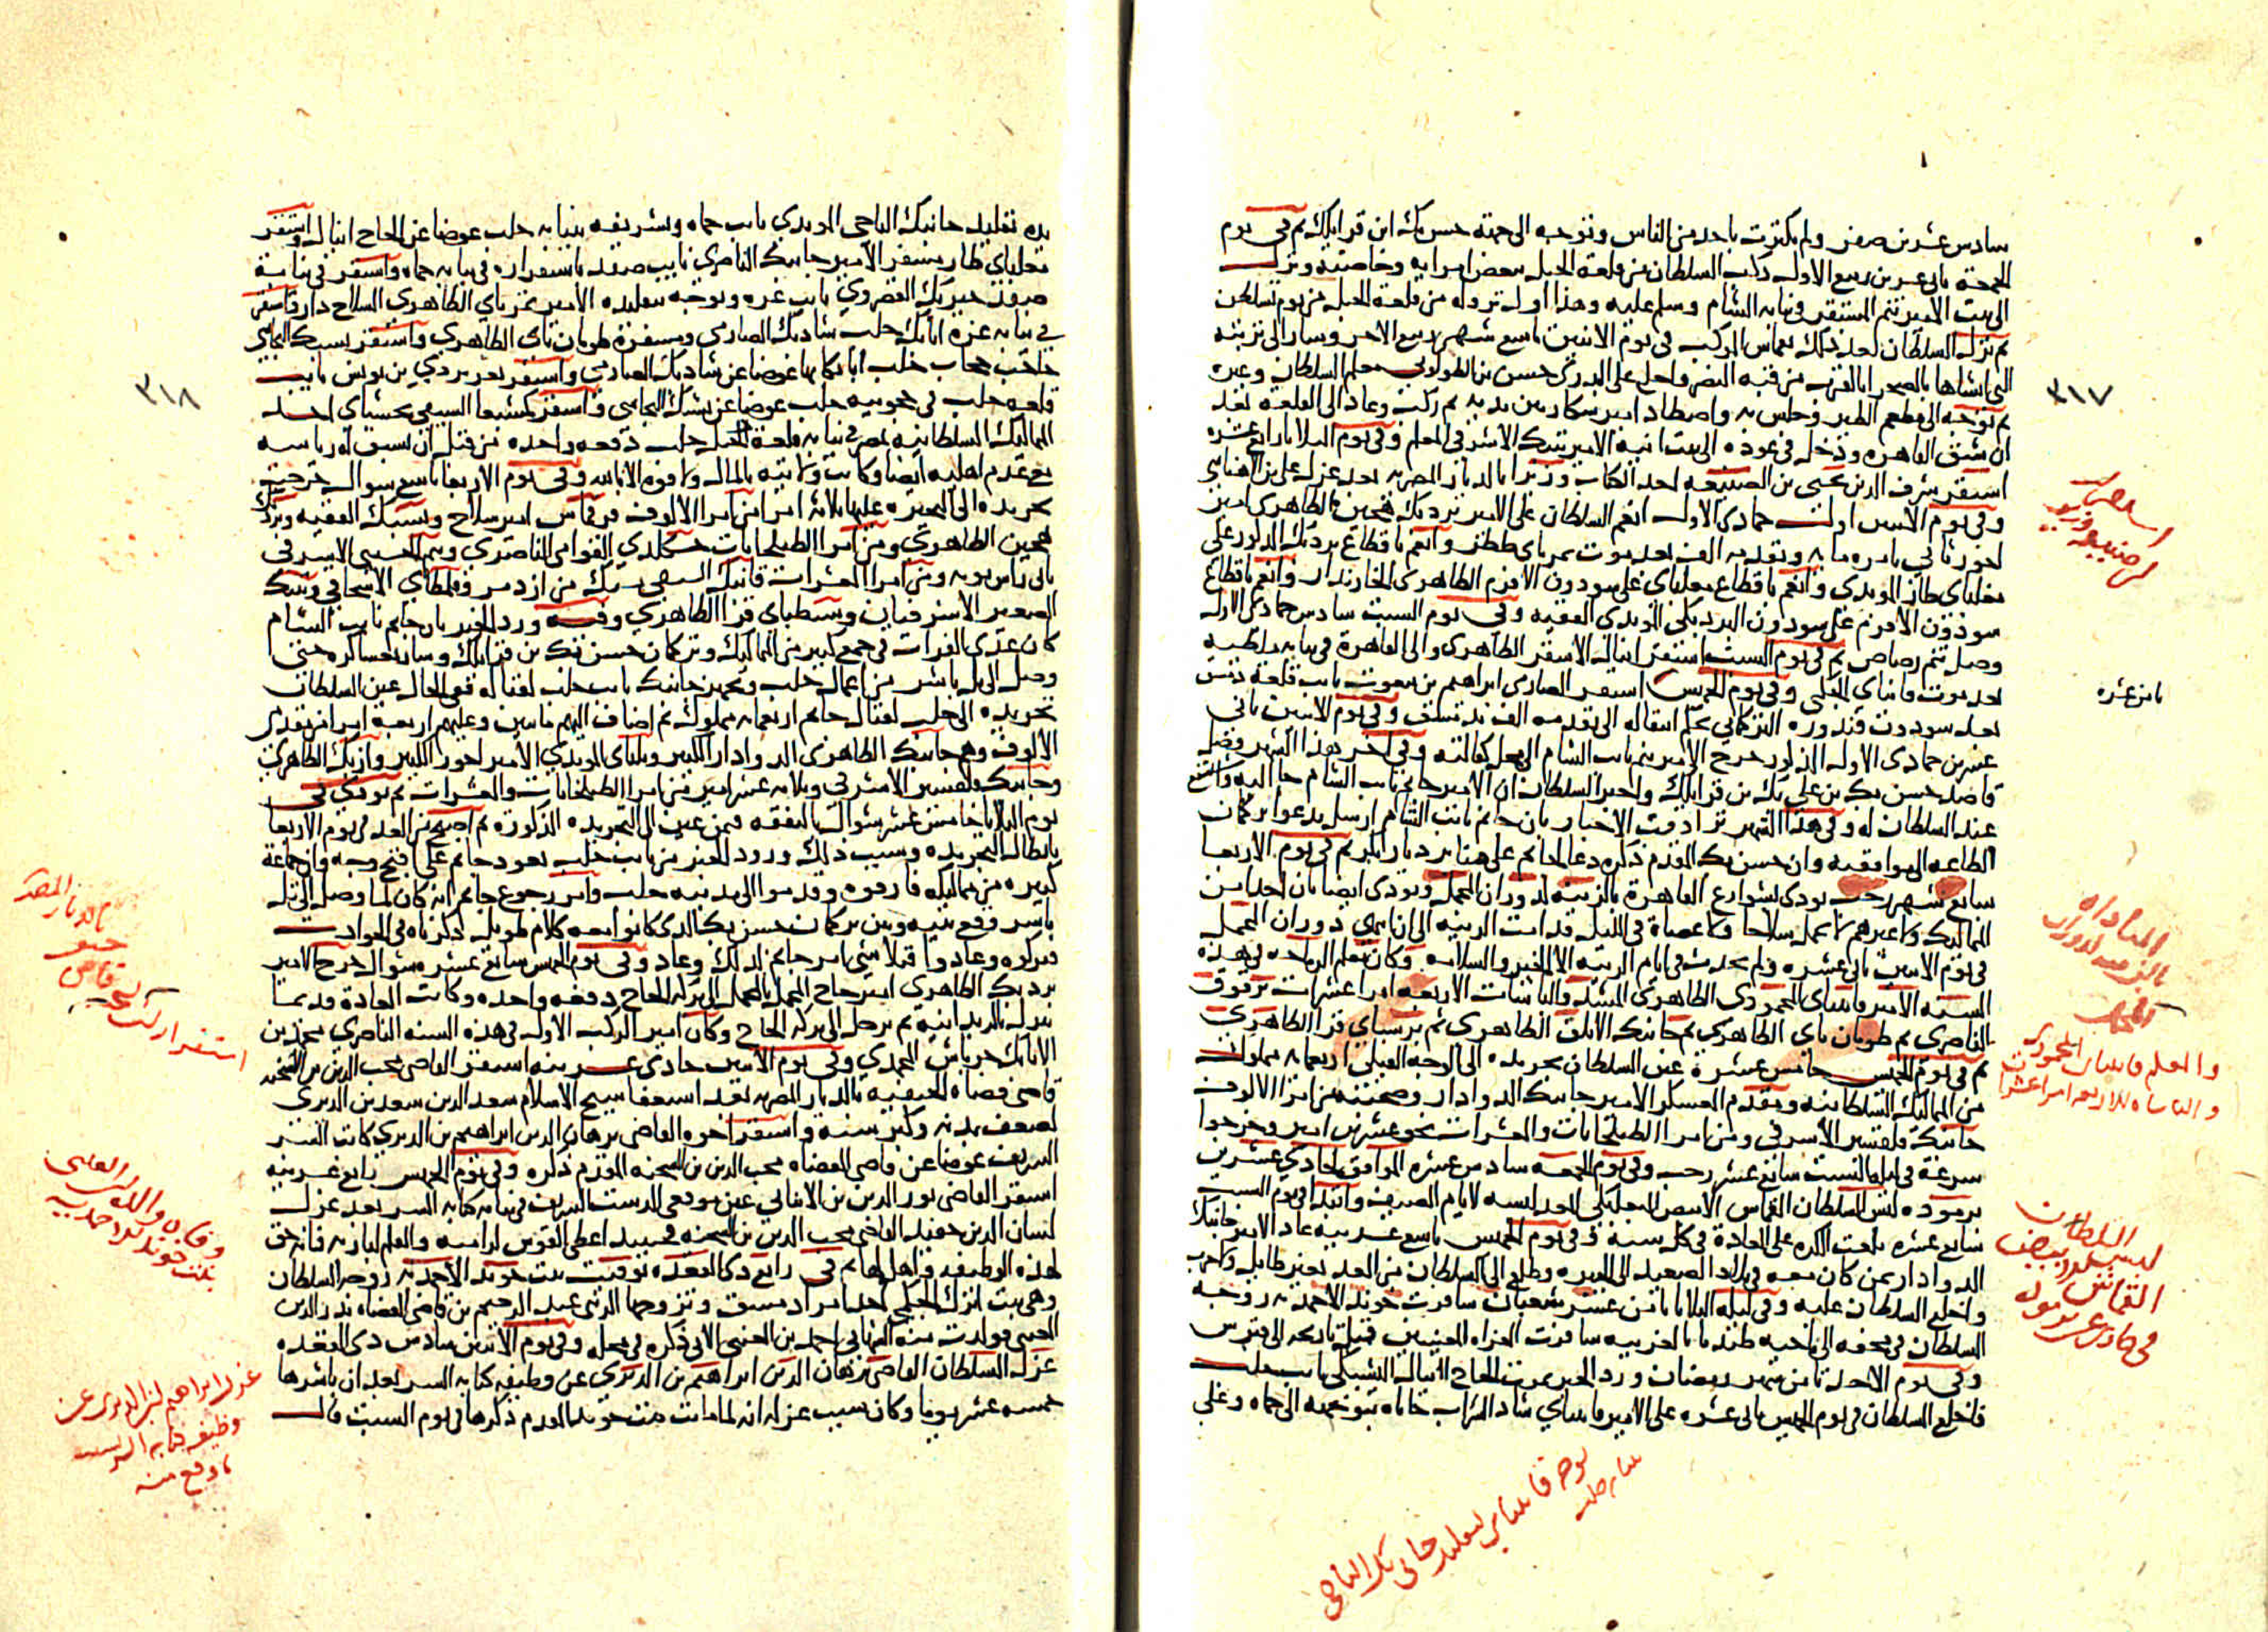 سادس عشرين صفر ولم يكترث باحد من الناس وتوجه الى جهة حسن بك ابن قرايلك ثم في يوم
الجمعة ثاني عشرين ربيع الاول ركب السلطان من قلعة الجبل ببعض امرايه وخاصكيته ونزل
الى بيت الامير تنم المستقر في نيابة الشام وسلم عليه وهذا اول نزوله من قلعة الجبل من يوم تسلطن
ثم نزل السلطان بعد ذلك بقماش الموكب في يوم الاثنين تاسع شهر ربيع الاخر وسار الى تربته
التي انشاها بالصحرا بالقرب من قبة النصر وخلع على البدري حسن بن الطولوني معلم السلطان وغيره
ثم توجه الى مطعم الطير وجلس به واصطاد امير شكار بين يديه ثم ركب وعاد الى القلعة بعد
ان شق القاهرة ودخل في عوده الى بيت الامير تنبك الاشرفي المعلم وفي يوم الثلاثا رابع عشره
استقر شرف الدين يحيى بن الصنيعة احد الكتاب وزيرا بالديار المصرية بعد عزل علي بن الاهناسي
وفي يوم الاثنين اول جمادى الاول انعم السلطان على الامير بردبك هجين الظاهري امير
اخور ثاني بامرة مائة وتقدمة الف بعد موت تمرباي ططر وانعم باقطاع بردبك المذكور على
مغلباي طاز المويدي وانعم باقطاع مغلباي على سودون الافرم الظاهري الخازندار وانعم باقطاع
سودون الافرم على سودون البردبكي المويدي الفقيه وفي يوم السبت سادس جمادى الاول
وصل تنم رصاص ثم في يوم السبت استقر اينال الاشقر الظاهري والي القاهرة في نيابة ملطية
بعد موت قانباي الجكمي وفي يوم الخميس استقر الصارمي ابراهيم بن بيغوت نايب قلعة دمشق
بعد سودون قندورة التركماني بحكم انتقاله الى تقدمة الف بدمشق وفي يوم الاثنين ثاني
عشرين جمادى الاول المذكور خرج الامير تنم نايب الشام الى محل كفالته وفي اخر هذا الشهر وصل
قاصد حسن بك بن علي بك بن قرايلك واخبر السلطان ان الامير جانم نايب الشام جا اليه واستشفع
عند السلطان له وفي هذا الشهر ترادفت الاخبار بان جانم نايب الشام ارسل يدعوا تركمان
الطاعة الى موافقته وان حسن بك المقدم ذكره دعا لجانم على منابر ديار بكر ثم في يوم الاربعا
سابع شهر رجب نودي بشوارع القاهرة بالزينة لدوران المحمل ونودي ايضا بان احدا من
المماليك ولا غيرهم لا يحمل سلاحا ولا عصاة في الليل فدامت الزينة الى ان انتهى دوران المحمل
في يوم الاثنين ثاني عشره ولم يحدث في ايام الزينة الا الخير والسلامة وكان معلم الرماحة في هذه
السنة الامير قايتباي المحمودي الظاهري المشد والباشات الاربعة امرا عشرات برقوق
الناصري ثم طومان باي الظاهري ثم جانبك الابلق الظاهري ثم برسباي قرا الظاهري
ثم في يوم الخميس خامس عشره عين السلطان تجريدة الى الوجه القبلي اربعمائة مملوك
من المماليك السلطانية ومقدم العسكر الامير جانبك الدوادار وصحبته من امرا الالوف
جانبك قلقسيز الاشرفي ومن امرا الطبلخانات والعشرات نحو عشرين امير وخرجوا
سرعة في ليلة السبت سابع عشر رجب وفي يوم الجمعة سادس عشره الموافق لحادي عشرين
برموده لبس السلطان القماش الابيض البعلبكي المعد لبسه لايام الصيف وابتدا في يوم السبت
سابع عشره بلعب الكره على العادة في كل سنة وفي يوم الخميس تاسع عشرينه عاد الامير جانبك
الدوادار بمن كان معه في بلاد الصعيد الى الجيزه وطلع الى السلطان من الغد بغير طايل ولا حرب
واخلع السلطان عليه وفي ليلة الثلاثا ثامن عشر شعبان سافرت خوند الاحمدية زوجة
السلطان في محفة الى ناحية طندتا بالغربية سافرت الغزاة المعينين قبل تاريخه الى قبرس
وفي يوم الاحد ثامن شهر رمضان ورد الخبر بموت الحاج اينال اليشبكي نايب حلب
فاخلع السلطان في يوم الخميس ثاني عشره على الامير قايتباي شاد الشراب خاناه بتوجهه الى حماه وعلى
٣١٧
ثامن عشره
المناداه
بالزينة لدوران
المحمل
والمعلم قايتباي المحمودي
والباشات الاربعة امرا عشرات
السلطان
لبس البعلبكي ابيض
القماش
في حادي عشر برموده
توجه قايتباي لتقليد جاني بك التاجي
نيابة حلب
يده تقليد جانبك التاجي المويدي نايب حماه وتشريفه بنيابة حلب عوضا عن الحاج اينال واستقر
مغلباي طاز مسفر الامير جانبك الناصري نايب صفد باستقراره في نيابة حماه واستقر في نيابة
صفد خيربك القصروي نايب غزه وتوجه بتقليده الامير تمرباي الظاهري السلاح دار واستقر
في نيابة غزه اتابك حلب شادبك الصارمي ومسفره طومان باي الظاهري واستقر يشبك البجاسي
حاجب حجاب حلب اتابكا بها عوضا عن شادبك الصارمي واستقر تغري بردي بن يونس نايب
قلعة حلب في حجوبية حلب عوضا عن يشبك البجاسي واستقر كمشبغا السيفي نخشباي احد
المماليك السلطانية بمصر في نيابة قلعة حلب دفعة واحدة من قبل ان تسبق له رياسة
مع عدم اهلية ايضا وكانت ولايته بالمال ولا قوة الا بالله وفي يوم الاربعا تاسع شوال خرجت
تجريدة الى البحيره عليها ثلاثة امرا من امرا الالوف قرقماس امير سلاح ويشبك الفقيه وبردبك
هجين الظاهري ومن امرا الطبلخانات جكلدي القوامي الناصري ويشبك الاشرفي
ثاني راس نوبة ومن امرا العشرات قانبك السيفي يشبك بن ازدمر وقلمطاي الاسحاقي وتنبك
الصغير الاشرفيان وسنطباي قرا الظاهري وفيه ورد الخبر بان جانم نايب الشام
كان عدى الفرات في جمع كبير من المماليك وتركمان حسن بك بن قرايلك وسار بعساكره حتى
وصل الى تل باشر من اعمال حلب وتجهز جانبك نايب حلب لقتاله ففي الحال عين السلطان
تجريدة الى حلب لقتال جانم اربعمائة مملوك ثم اضاف اليهم مايتين وعليهم اربعة امرا من مقدمي
الالوف وهم جانبك الظاهري الدوادار الكبير ويلباي المويدي الامير اخور الكبير وازبك الظاهري
وجانبك قلقسيز الاشرفي وثلاثة عشر امير من امرا الطبلخانات والعشرات ثم نودي في
يوم الثلاثا خامس عشر شوال بالنفقه فيمن عين الى التجريدة المذكورة ثم اصبح من الغد في يوم الاربعا
بابطال التجريده وسبب ذلك ورود الخبر من نايب حلب بعود جانم على اقبح وجه وان جماعة
كبيره من مماليكه فارقوه وقدموا الى مدينة حلب وامر رجوع جانم انه كان لما وصل الى تل
باشر وقع بينه وبين تركمان حسن بك الذي كانوا معه كلام طويل ذكرناه في الحوادث
فتركوه وعادوا فتلاشى امر جانم لذلك وعاد وفي يوم الخميس سابع عشره شوال خرج الامير
بردبك الظاهري امير حاج المحمل بالمحمل الى بركة الحاج دفعة واحدة وكانت العادة قديما
ينزل بالريدانية ثم يرحل الى بركة الحاج وكان امير الركب الاول في هذه السنة الناصري محمد بن
الاتابك جرباش المحمدي وفي يوم الاثنين حادي عشرينه استقر القاضي محب الدين بن الشحنة
قاضي قضاة الحنفية بالديار المصرية بعد استعفا شيخ الاسلام سعد الدين سعد بن الديري
لضعف بدنه وكبر سنه واستقر اخوه القاضي برهان الدين ابراهيم بن الديري كاتب السر
الشريف عوضا عن قاضي القضاه محب الدين بن الشحنة المقدم ذكره وفي يوم الخميس رابع عشرينه
استقر القاضي نور الدين بن الانبابي عين موقعي الدست الشريف في نيابة كتابة السر بعد عزل
لسان الدين حفيد القاضي محب الدين بن الشحنة فحينئذ اعطي القوس لراميه والقلم لباريه فانه حق
لهذه الوظيفة واهل لها ثم في رابع ذي القعدة توفيت بنت خوند الاحمدية زوجة السلطان
وهي بنت ابرك الجكمي احد امرا دمشق وتزوجها الزيني عبد الرحيم بن قاضي القضاه بدر الدين
العيني فولدت منه الشهابي احمد بن العيني الاتي ذكره في محله وفي يوم الاثنين سادس ذي القعده
عزل السلطان القاضي برهان الدين ابراهيم بن الديري عن وظيفة كتابة السر بعد ان باشرها
خمسه عشر يوما وكان سبب عزله انه لما ماتت بنت خوند المقدم ذكرها في يوم السبت قال
٣١٨
استقرار ابن الشحنة قاضي
حنفي
بالديار المصرية
وفاة والدة ابن العيني
بنت خوند الاحمدية
عزل ابراهيم ابن الديري عن
وظيفة كتابة السر
ما وقع منه